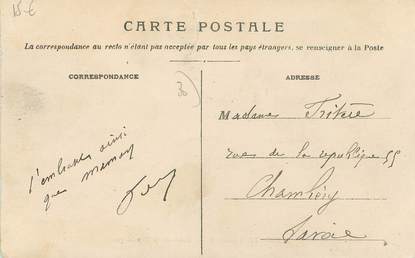 15 €
CARTE POSTALE
La correspondance au recto n'étant pas acceptée par tous les pays étrangers, se renseigner à la Poste
CORRESPONDANCE
ADRESSE
Madame
rue de la republique 55
Chambéry
Savoie
j'embrasse ainsi
que maman